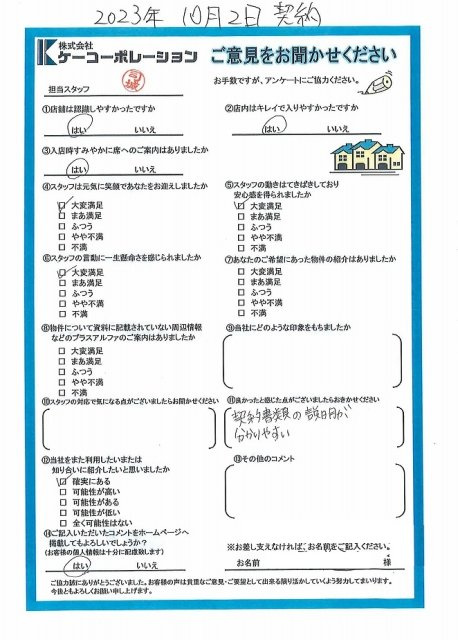 2023年 10月2日 契約
K 株式会社
ケーコーポレーション
ご意見をお聞かせください
お手数ですが、アンケートにご協力ください。
担当スタッフ
①店舗は認識しやすかったですか
はい いいえ
②店内はキレイで入りやすかったですか
はい いいえ
③入店時すみやかに席へのご案内はありましたか
はい いいえ
④スタッフは元気に笑顔であなたをお迎えしましたか
大変満足
まあ満足
ふつう
やや不満
不満
⑤スタッフの動きはてきぱきしており
安心感を得られましたか
大変満足
まあ満足
ふつう
やや不満
不満
⑥スタッフの言動に一生懸命さを感じられましたか
大変満足
まあ満足
ふつう
やや不満
不満
⑦あなたのご希望にあった物件の紹介はありましたか
大変満足
まあ満足
ふつう
やや不満
不満
⑧物件について資料に記載されていない周辺情報
などのプラスアルファのご案内はありましたか
大変満足
まあ満足
ふつう
やや不満
不満
⑨当社にどのような印象をもちましたか
⑩スタッフの対応で気になる点がございましたらお聞かせください
⑪良かったと感じた点がございましたらおきかせください
契約書類の説明が
分かりやすい
⑫当社をまた利用したいまたは
知り合いに紹介したいと思いましたか
確実にある
可能性が高い
可能性がある
可能性が低い
全く可能性はない
⑬その他のコメント
⑭ご記入いただいたコメントをホームページへ
掲載してもよろしいでしょうか?
(お客様の個人情報は十分に配慮致します)
はい いいえ
※お差し支えなければ、お名前をご記入ください。
お名前 様
ご協力誠にありがとうございました。お客様の声は貴重なご意見・ご要望として出来る限り活かしていくよう努力してまいります。
今後ともよろしくお願い申し上げます。